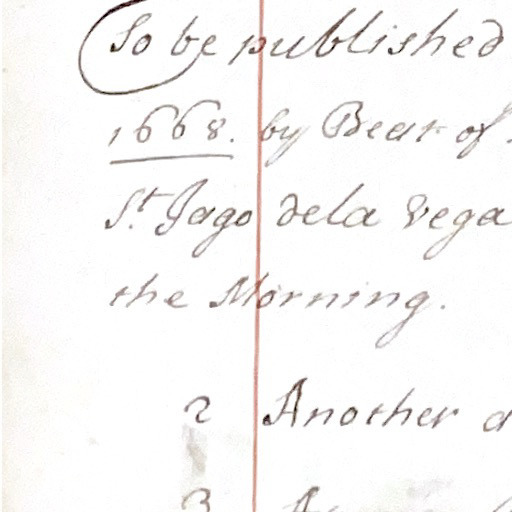 So be published
1668. by Beat of
St. Jago dela Vega
the Morning.
2 Another
3